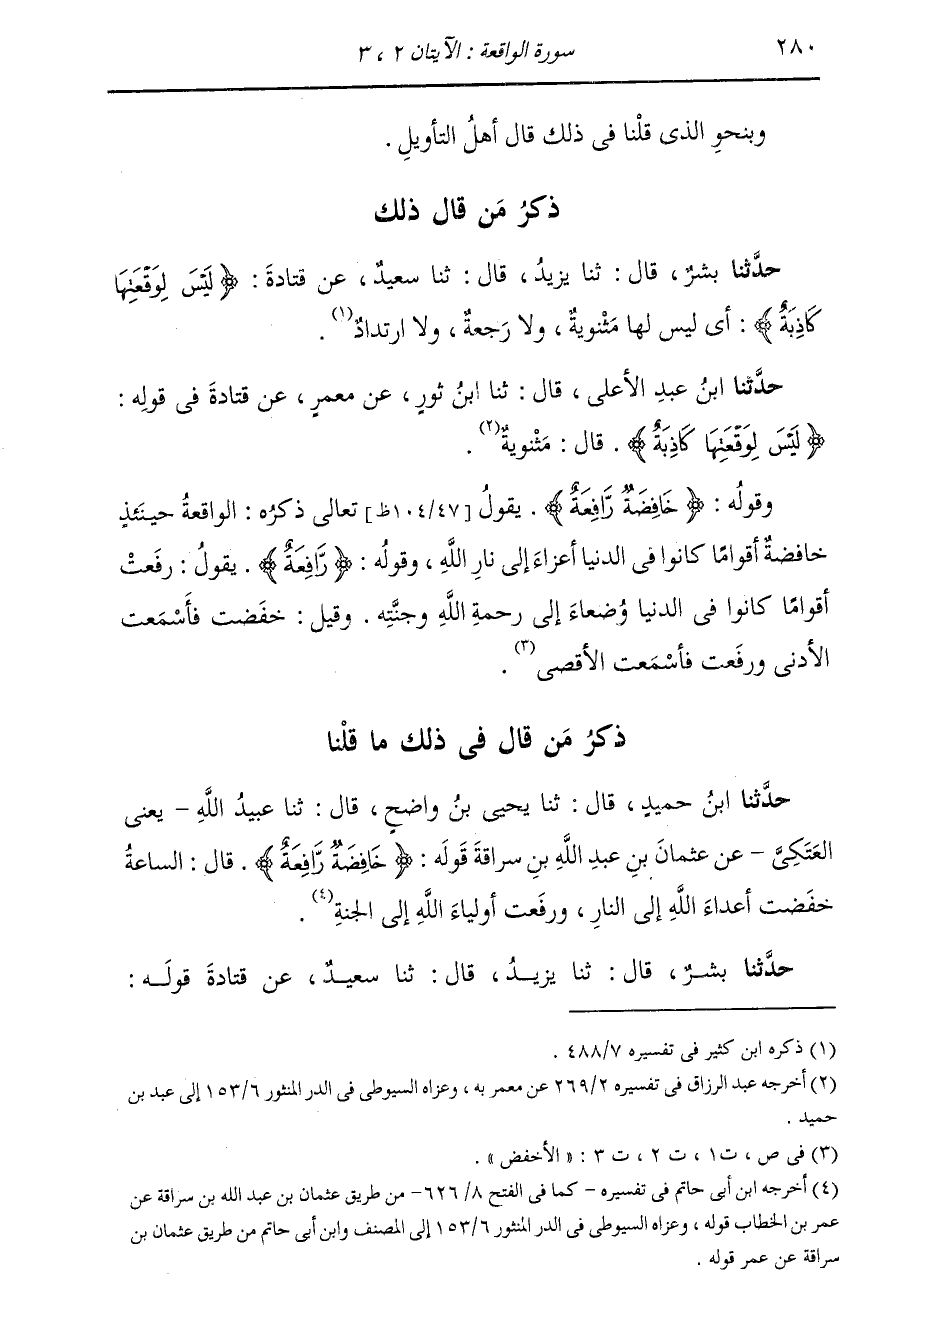 ٢٨٠
سورة الواقعة : الآيتان ٢ ، ٣
وبنحوِ الذى قلْنا فى ذلك قال أهلُ التأويلِ .
ذكرُ مَن قال ذلك
حدَّثنا بشرٌ ، قال : ثنا يزيدُ ، قال : ثنا سعيدٌ ، عن قتادةَ : ﴿ لَيْسَ لِوَقْعَتِهَا
كَاذِبَةٌ ﴾ : أى ليس لها مَثْنويةٌ ، ولا رَجعةٌ ، ولا ارتدادٌ(١) .
حدَّثنا ابنُ عبدِ الأعلى ، قال : ثنا ابنُ ثورٍ ، عن معمرٍ ، عن قتادةَ فى قولِه :
﴿ لَيْسَ لِوَقْعَتِهَا كَاذِبَةٌ ﴾ . قال : مَثْنويةٌ(٢) .
وقولُه : ﴿ خَافِضَةٌ رَّافِعَةٌ ﴾ . يقولُ [١٠٤/٤٧ظ] تعالى ذكرُه : الواقعةُ حينَئذٍ
خافضةٌ أقوامًا كانوا فى الدنيا أعزاءَ إلى نارِ اللَّهِ ، وقولُه : ﴿ رَّافِعَةٌ ﴾ . يقولُ : رفَعتْ
أقوامًا كانوا فى الدنيا وُضعاءَ إلى رحمةِ اللَّهِ وجنَّتِه . وقيل : خفَضت فأَسْمَعت
الأدنى ورفَعت فأسْمَعت الأقصى(٣) .
ذكرُ مَن قال فى ذلك ما قلْنا
حدَّثنا ابنُ حميدٍ ، قال : ثنا يحيى بنُ واضحٍ ، قال : ثنا عبيدُ اللَّهِ - يعنى
العَتَكِىَّ - عن عثمانَ بنِ عبدِ اللَّهِ بنِ سراقةَ قَولَه : ﴿ خَافِضَةٌ رَّافِعَةٌ ﴾ . قال : الساعةُ
خفَضت أعداءَ اللَّهِ إلى النارِ ، ورفَعت أولياءَ اللَّهِ إلى الجنةِ(٤) .
حدَّثنا بشرٌ ، قال : ثنا يزيدُ ، قال : ثنا سعيدٌ ، عن قتادةَ قولَه :
(١) ذكره ابن كثير فى تفسيره ٤٨٨/٧ .
(٢) أخرجه عبد الرزاق فى تفسيره ٢٦٩/٢ عن معمر به ، وعزاه السيوطى فى الدر المنثور ١٥٣/٦ إلى عبد بن
حميد .
(٣) فى ص ، ت١ ، ت ٢ ، ت ٣ : « الأخفض » .
(٤) أخرجه ابن أبى حاتم فى تفسيره - كما فى الفتح ٦٢٦/٨ - من طريق عثمان بن عبد الله بن سراقة عن
عمر بن الخطاب قوله ، وعزاه السيوطى فى الدر المنثور ١٥٣/٦ إلى المصنف وابن أبى حاتم من طريق عثمان بن
سراقة عن عمر قوله .